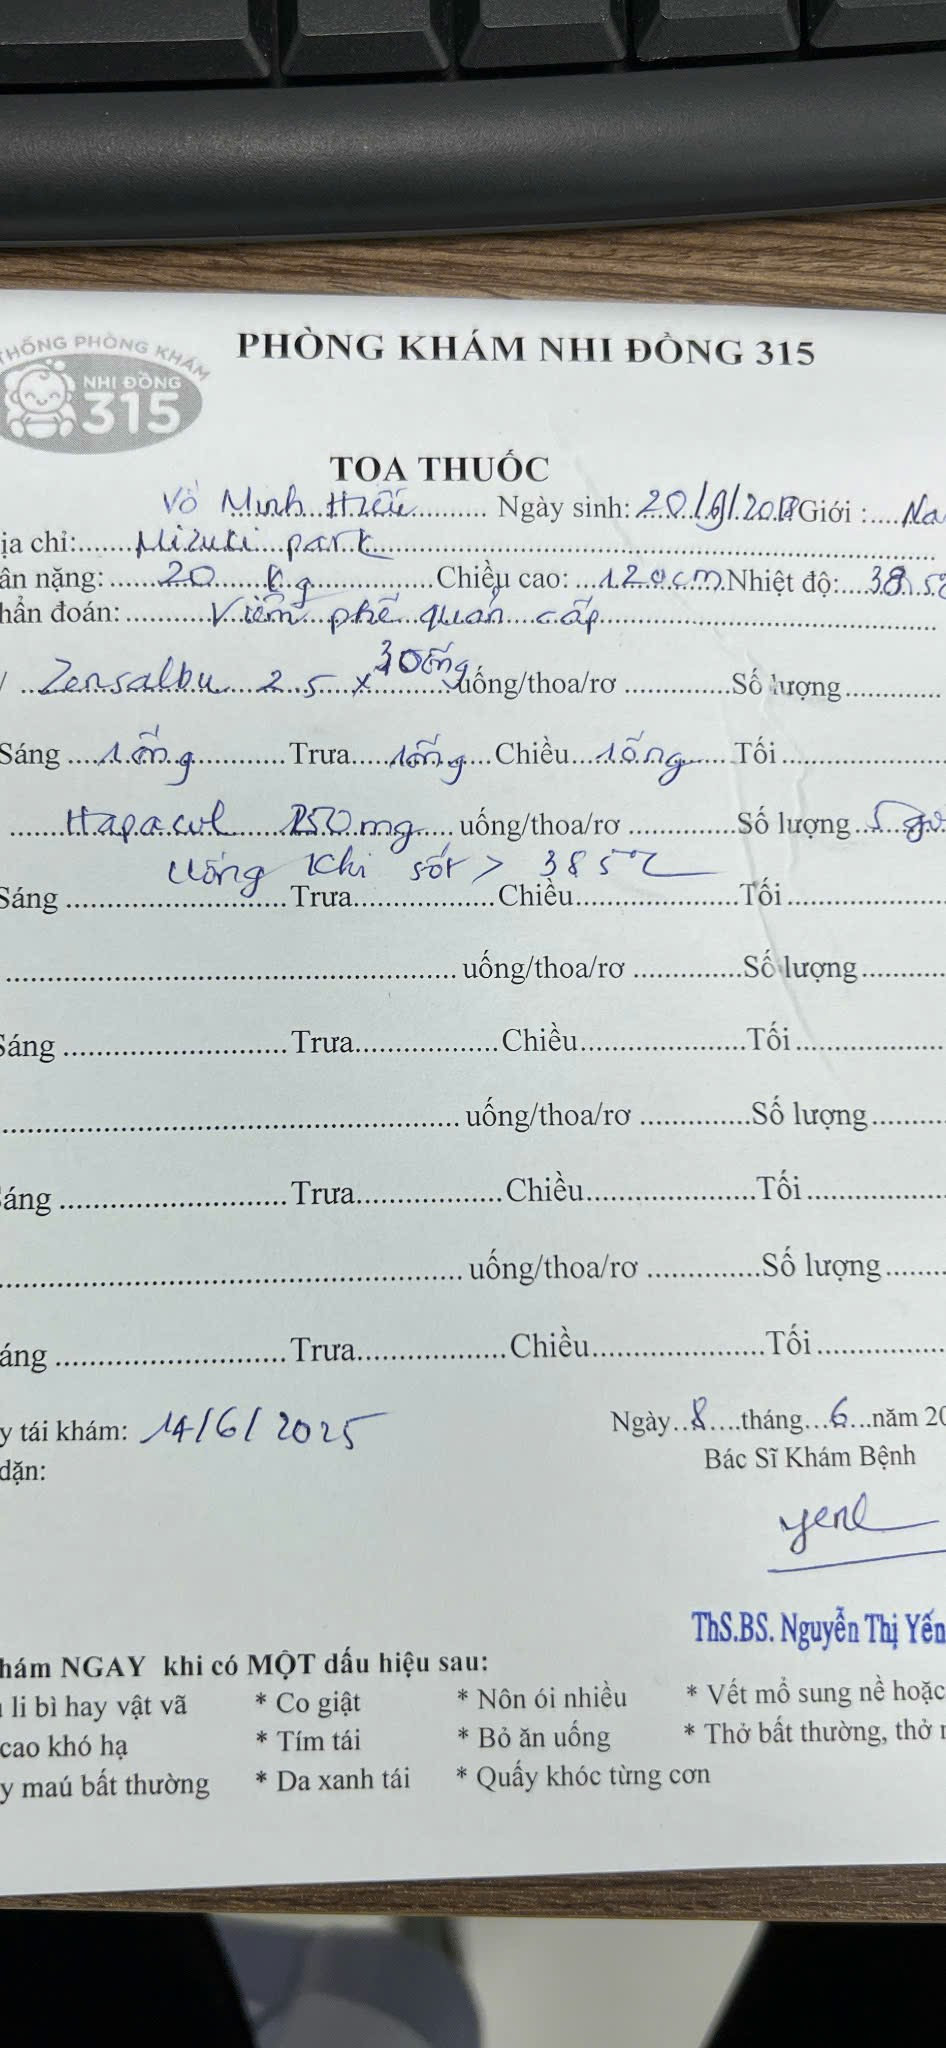 THỐNG PHÒNG KHÁM
NHI ĐỒNG
315
PHÒNG KHÁM NHI ĐỒNG 315
TOA THUỐC
Võ Minh Hiếu Ngày sinh: 20/9/201 Giới : Na
ịa chỉ: Mizuki park
ân nặng: 20 kg Chiều cao: 120cm Nhiệt độ: 38.5°
hẩn đoán: Viêm phế quản cấp
Zensalbu 2.5 x 30 ống uống/thoa/rơ Số lượng
Sáng 1 ống Trưa 1 ống Chiều 1 ống Tối
Hapacol 250mg uống/thoa/rơ Số lượng 5 gó
Uống khi sốt > 385°C
Sáng Trưa Chiều Tối
uống/thoa/rơ Số lượng
Sáng Trưa Chiều Tối
uống/thoa/rơ Số lượng
Sáng Trưa Chiều Tối
uống/thoa/rơ Số lượng
áng Trưa Chiều Tối
y tái khám: 14/6/2025 Ngày 8 tháng 6 năm 20
dặn: Bác Sĩ Khám Bệnh
ThS.BS. Nguyễn Thị Yến
hám NGAY khi có MỘT dấu hiệu sau:
li bì hay vật vã * Co giật * Nôn ói nhiều * Vết mổ sung nề hoặc
cao khó hạ * Tím tái * Bỏ ăn uống * Thở bất thường, thở
y maú bất thường * Da xanh tái * Quấy khóc từng cơn